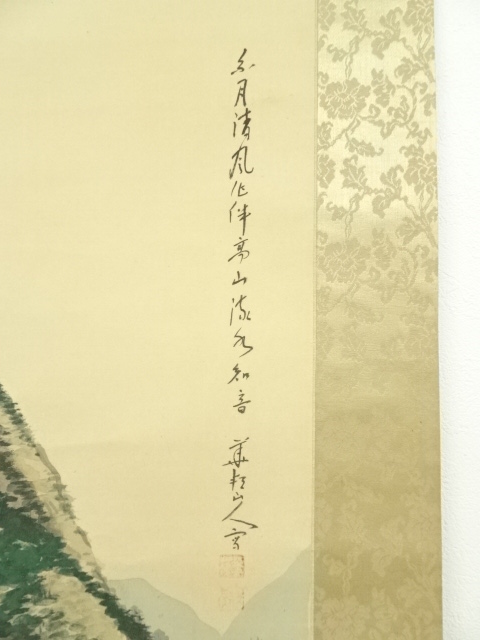 白月清風作伴高山流水知音 華頂山人寫